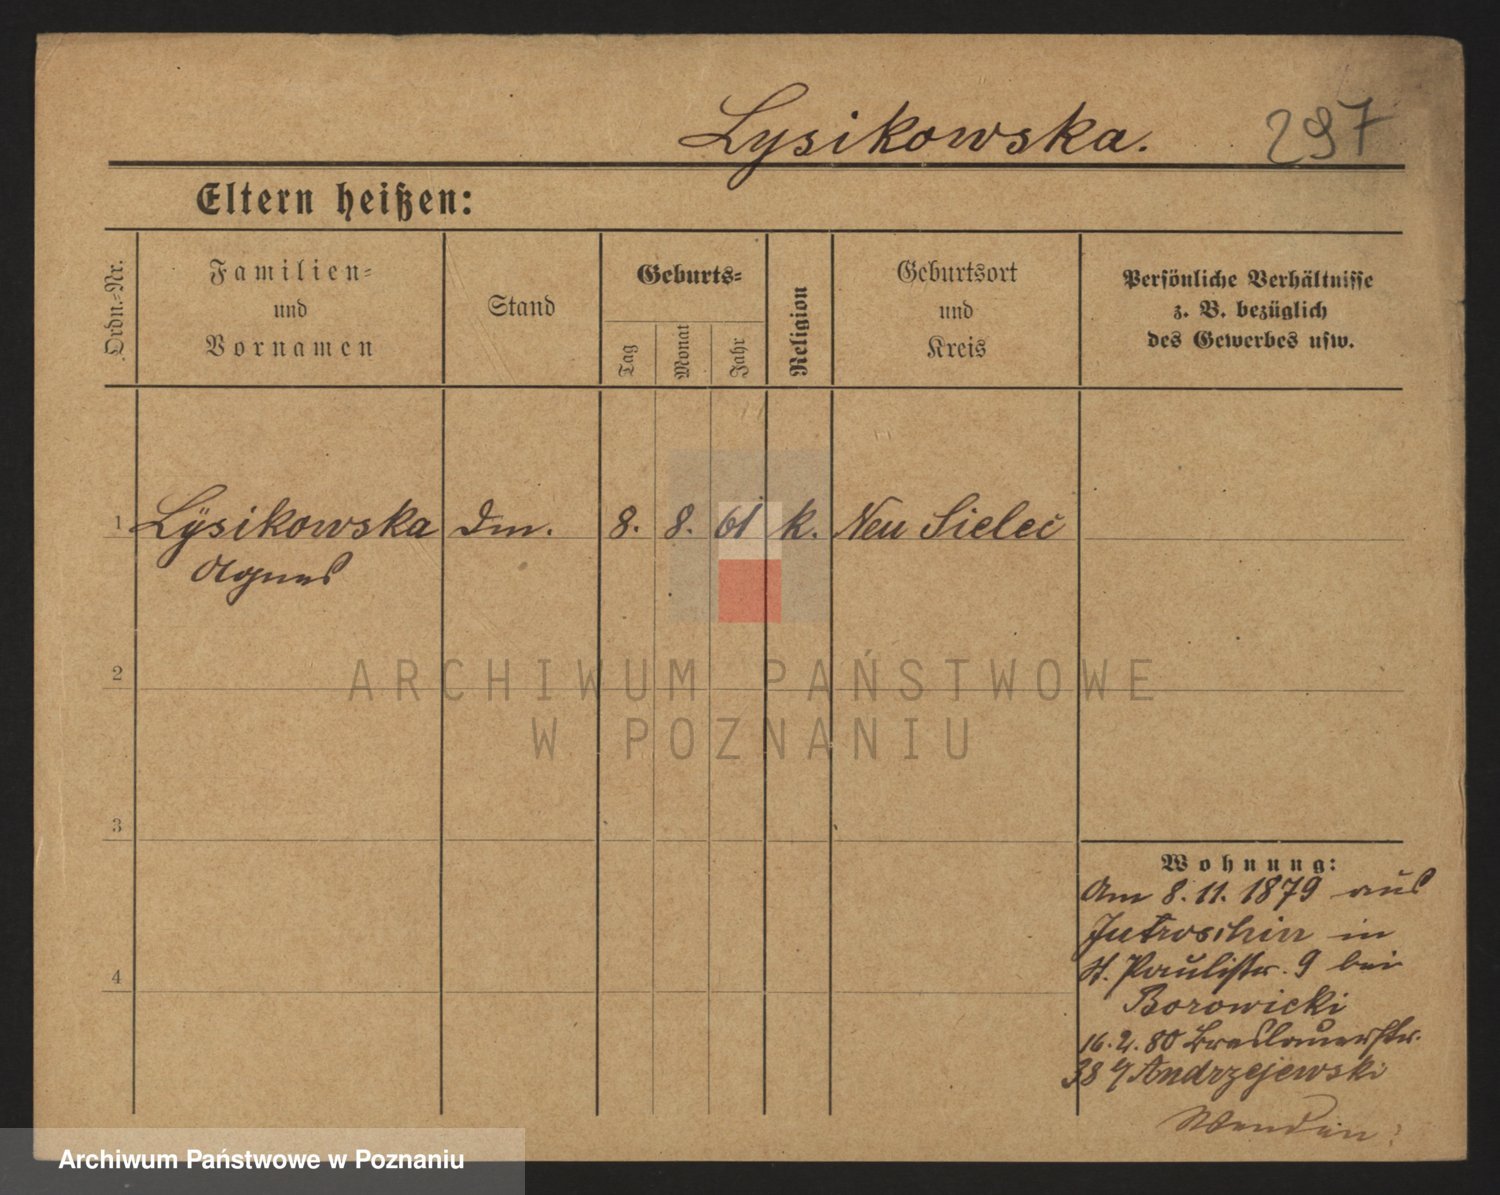 Lysikowska. 297
Eltern heißen:
Ordn.-Nr.
Familien-
und
Vornamen
Stand
Geburts-
Tag
Monat
Jahr
Religion
Geburtsort
und
Kreis
Persönliche Verhältnisse
z. B. bezüglich
des Gewerbes usw.
1 Lÿsikowska Dm. 8. 8. 61 k. Neu Sielec
Agnes
2
ARCHIWUM PAŃSTWOWE
W POZNANIU
3
Wohnung:
Am 8. 11. 1879 aus
Jutroschin in
St. Paulistr. 9 bei
4
Borowicki
16. 2. 80 Breslauerstr.
38 b/ Andrzejewski
Wenden!
Archiwum Państwowe w Poznaniu